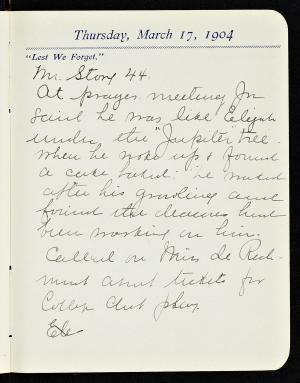 Thursday, March 17, 1904
"Lest We Forget."
Mr. Story 44.
At prayer meeting Jr
said he was like Elijah
under the "Juniper" tree.
When he woke up & found
a cake baked: he
after his and
found the deacons had
been working on him.
Called on Miss De Rich-
mond about tickets for
College Club play.